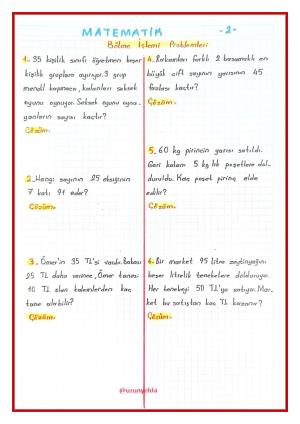 MATEMATİK -2-
Bölme İşlemi Problemleri
1. 35 kişilik sınıfı öğretmen beşer
kişilik gruplara ayırıyor. 3 grup
mendil kapmaca, kalanları seksek
oyunu oynuyor. Seksek oyunu oyna-
yanların sayısı kaçtır?
Çözüm:
2. Hangi sayının 25 eksiğinin
7 katı 91 eder?
Çözüm:
3. Ömer'in 35 TL'si vardır. Babası
25 TL daha verince, Ömer tanesi
10 TL olan kalemlerden kaç
tane alabilir?
Çözüm:
4. Rakamları farklı 2 basamaklı en
büyük çift sayının yarısının 45
fazlası kaçtır?
Çözüm:
5. 60 kg pirincin yarısı satıldı.
Geri kalanı 5 kg lık poşetlere dol-
duruldu. Kaç poşet pirinç elde
edilir?
Çözüm:
6. Bir market 95 litre zeytinyağını
beşer litrelik tenekelere dolduruyor.
Her tenekeyi 50 TL'ye satıyor. Mar-
ket bu satıştan kaç TL kazanır?
Çözüm:
@uzunyelda